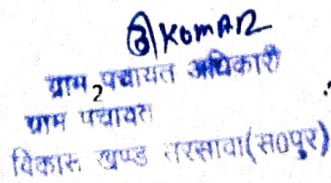 ③ KUMAR
ग्राम पंचायत अधिकारी
2
ग्राम पंचायत
विकास खण्ड तरसावा(स0पुर)